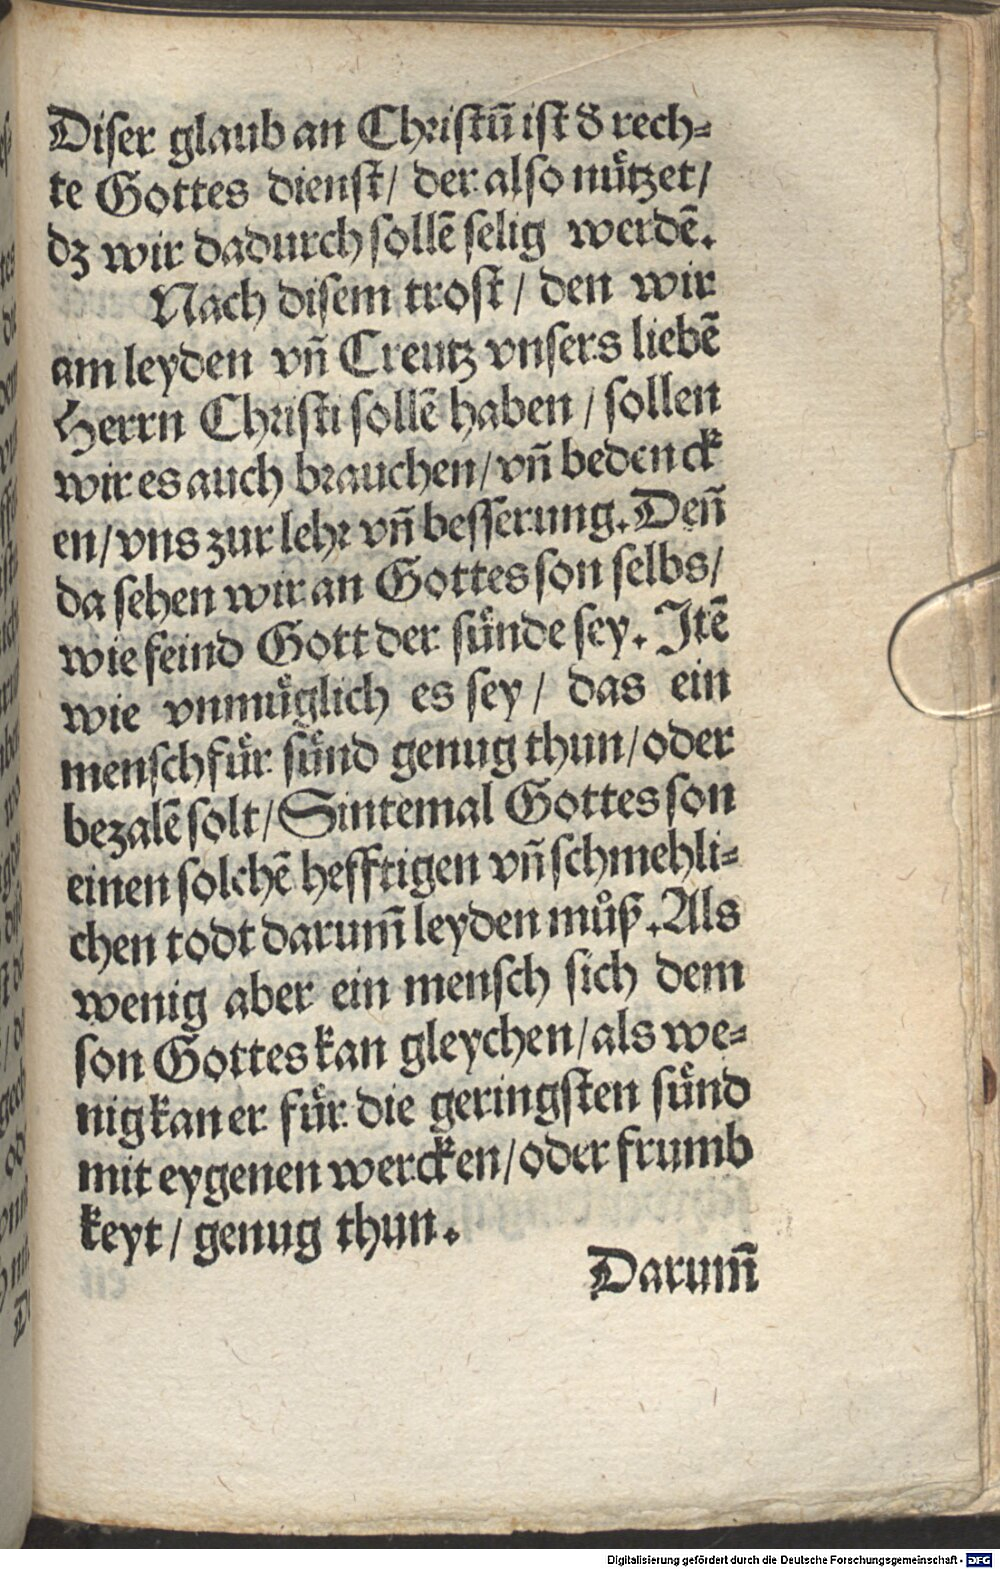 Diſer glaub an Chriſtū iſt ð rech⸗
te Gottes dienſt/ der alſo nuͤtzet/
dz wir dadurch ſollē ſelig werdē.
Nach diſem troſt/ den wir
am leyden vn̄ Creutz vnſers liebē
Herrn Chriſti ſollē haben/ ſollen
wir es auch brauchen/ vn̄ bedenck
en/ vns zur lehr vn̄ beſſerung. Den̄
da ſehen wir an Gottes ſon ſelbs/
wie feind Gott der ſuͤnde ſey. Itē
wie vnmuͤglich es ſey/ das ein
menſch fuͤr ſuͤnd genug thun/ oder
bezalē ſolt/ Sintemal Gottes ſon
einen ſolchē hefftigen vn̄ ſchmehli⸗
chen todt darum̄ leyden muͦß. Als
wenig aber ein menſch ſich dem
ſon Gottes kan gleychen/ als we⸗
nig kan er fuͤr die geringſten ſuͤnd
mit eygenen wercken/ oder frumb
keyt/ genug thun.
Darum̄
Digitalisierung gefördert durch die Deutsche Forschungsgemeinschaft - DFG